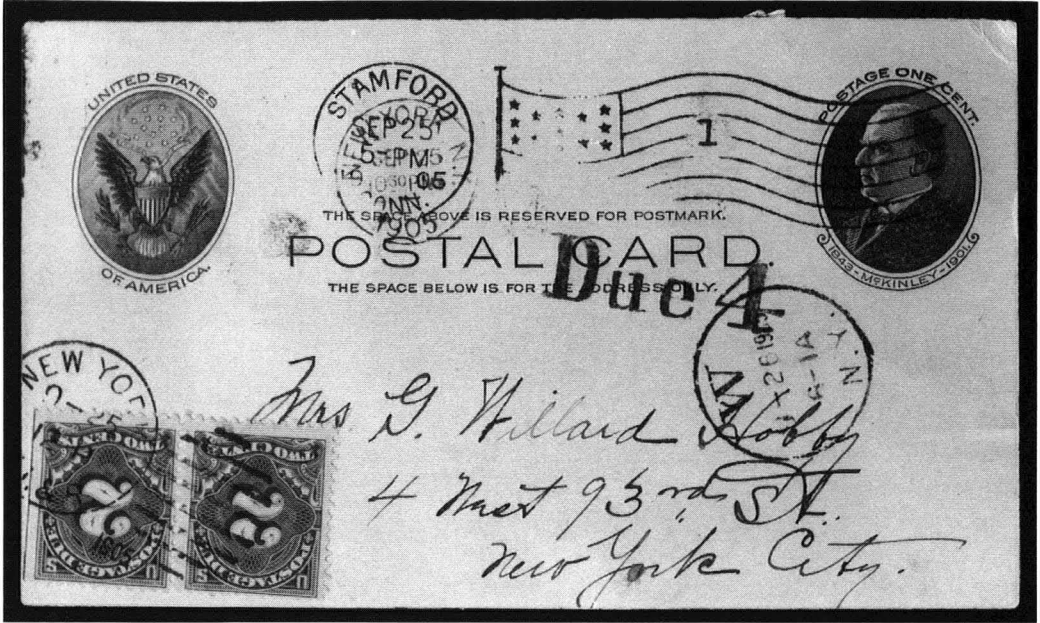 UNITED STATES
OF AMERICA.
STAMFORD
SEP 25
5- PM
05
CONN.
1905
1
POSTAGE ONE CENT.
1843-McKINLEY-1901.
THE SPACE ABOVE IS RESERVED FOR POSTMARK.
POSTAL CARD.
THE SPACE BELOW IS FOR THE ADDRESS ONLY.
Due 4
N.Y.
NEW YORK
Mrs G. Willard Hobby
4 West 93rd St.
New York City.
2
2
POSTAGE DUE
POSTAGE DUE